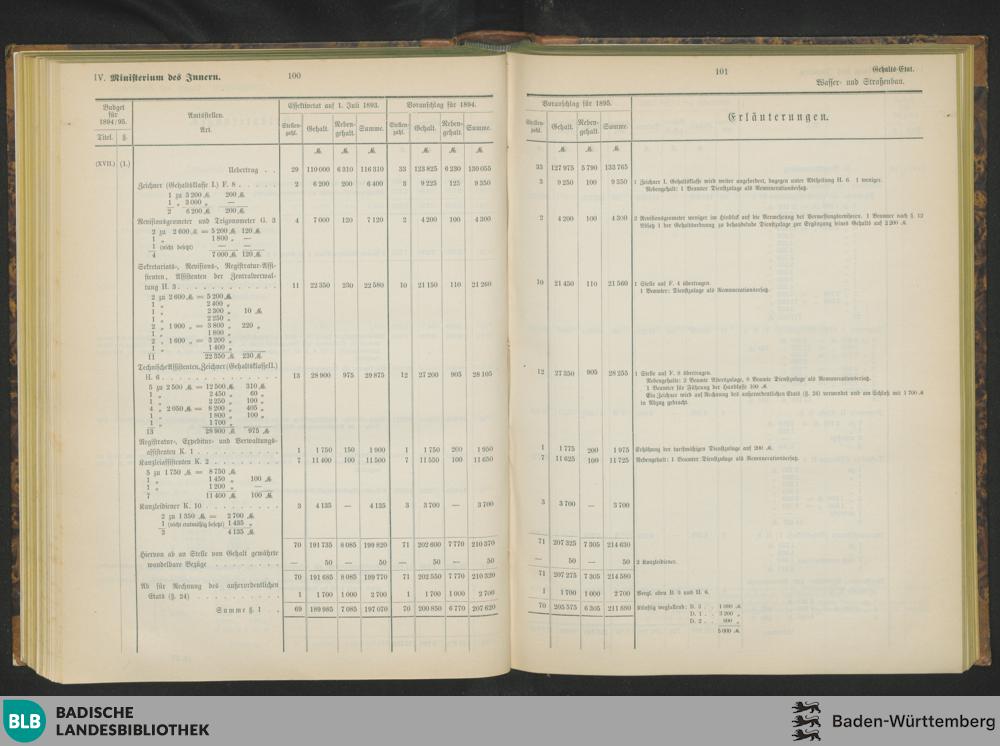 IV. Ministerium des Innern.
100
Budget für 1894/95.
Titel. §
Amtsstellen.
Art.
Effektivetat auf 1. Juli 1893.
Voranschlag für 1894.
Stellenzahl. Gehalt. Nebengehalt. Summe. Stellenzahl. Gehalt. Nebengehalt. Summe.
ℳ ℳ ℳ ℳ ℳ ℳ
(XVII.) (1.)
Uebertrag . . 29 110 000 6 310 116 310 33 123 825 6 230 130 055
Zeichner (Gehaltsklasse I.) F. 8 . . . . . 2 6 200 200 6 400 3 9 225 125 9 350
1 zu 3 200 ℳ 200 ℳ
1 „ 3 000 „ —
2 6 200 ℳ 200 ℳ
Revisionsgeometer und Trigonometer G. 3 4 7 000 120 7 120 2 4 200 100 4 300
2 zu 2 600 ℳ = 5 200 ℳ 120 ℳ
1 „ 1 800 „ —
1 (nicht besetzt) — —
4 7 000 ℳ 120 ℳ
Sekretariats-, Revisions-, Registratur-Assi-
stenten, Assistenten der Zentralverwal-
tung H. 3 . . . . . . . . . . . . 11 22 350 230 22 580 10 21 150 110 21 260
2 zu 2 600 ℳ = 5 200 ℳ
1 „ 2 400 „
1 „ 2 300 „ 10 ℳ
1 „ 2 250 „
2 „ 1 900 „ = 3 800 „ 220 „
1 „ 1 800 „
2 „ 1 600 „ = 3 200 „
1 „ 1 400 „
11 22 350 ℳ 230 ℳ
Technische Assistenten, Zeichner (Gehaltsklasse II.)
H. 6 . . . . . . . . . . . . . . 13 28 900 975 29 875 12 27 200 905 28 105
5 zu 2 500 ℳ = 12 500 ℳ 310 ℳ
1 „ 2 450 „ 60 „
1 „ 2 250 „ 100 „
4 „ 2 050 ℳ = 8 200 „ 405 „
1 „ 1 800 „ 100 „
1 „ 1 700 „
13 28 900 ℳ 975 ℳ
Registratur-, Expeditur- und Verwaltungs-
assistenten K. 1 . . . . . . . . . . 1 1 750 150 1 900 1 1 750 200 1 950
Kanzleiassistenten K. 2 . . . . . . . . 7 11 400 100 11 500 7 11 550 100 11 650
5 zu 1 750 ℳ = 8 750 ℳ
1 „ 1 450 „ 100 ℳ
1 „ 1 200 „ —
7 11 400 ℳ 100 ℳ
Kanzleidiener K. 10 . . . . . . . . . 3 4 135 — 4 135 3 3 700 — 3 700
2 zu 1 350 ℳ = 2 700 ℳ
1 (nicht etatmäßig besetzt) 1 435 „
3 4 135 ℳ
70 191 735 8 085 199 820 71 202 600 7 770 210 370
Hiervon ab an Stelle von Gehalt gewährte
wandelbare Bezüge . . . . . . . . . — 50 — 50 — 50 — 50
70 191 685 8 085 199 770 71 202 550 7 770 210 320
Ab für Rechnung des außerordentlichen
Etats (§. 24) . . . . . . . . . . 1 1 700 1 000 2 700 1 1 700 1 000 2 700
Summe §. 1 . . 69 189 985 7 085 197 070 70 200 850 6 770 207 620
101
Gehalts-Etat.
Wasser- und Straßenbau.
Voranschlag für 1895.
Stellenzahl. Gehalt. Nebengehalt. Summe.
Erläuterungen.
ℳ ℳ ℳ
33 127 975 5 790 133 765
3 9 250 100 9 350 1 Zeichner I. Gehaltsklasse wird weiter angefordert, dagegen unter Abtheilung H. 6. 1 weniger.
Nebengehalt: 1 Beamter Dienstzulage als Remunerationsersatz.
2 4 200 100 4 300 2 Revisionsgeometer weniger im Hinblick auf die Vermehrung der Vermessungsrevisoren. 1 Beamter nach §. 12
Absatz 1 der Gehaltsordnung zu behandelnde Dienstzulage zur Ergänzung seines Gehalts auf 2 200 ℳ
10 21 450 110 21 560 1 Stelle auf F. 4 übertragen.
1 Beamter: Dienstzulage als Remunerationsersatz.
12 27 350 905 28 255 1 Stelle auf F. 8 übertragen.
Nebengehalt: 2 Beamte Alterszulage, 8 Beamte Dienstzulage als Remunerationsersatz.
1 Beamter für Führung der Handkasse 100 ℳ
Ein Zeichner wird auf Rechnung des außerordentlichen Etats (§. 24) verwendet und am Schluß mit 1 700 ℳ
in Abzug gebracht.
1 1 775 200 1 975 Erhöhung der tarifmäßigen Dienstzulage auf 200 ℳ
7 11 625 100 11 725 Nebengehalt: 1 Beamter Dienstzulage als Remunerationsersatz.
3 3 700 — 3 700
71 207 325 7 305 214 630
— 50 — 50 2 Kanzleidiener.
71 207 275 7 305 214 580
1 1 700 1 000 2 700 Vergl. oben B. 5 und H. 6.
70 205 575 6 305 211 880 Künftig wegfallend: B. 3 . . 1 000 ℳ
D. 1 . . 3 200 „
D. 2 . . 800 „
5 000 ℳ
BLB
BADISCHE
LANDESBIBLIOTHEK
Baden-Württemberg